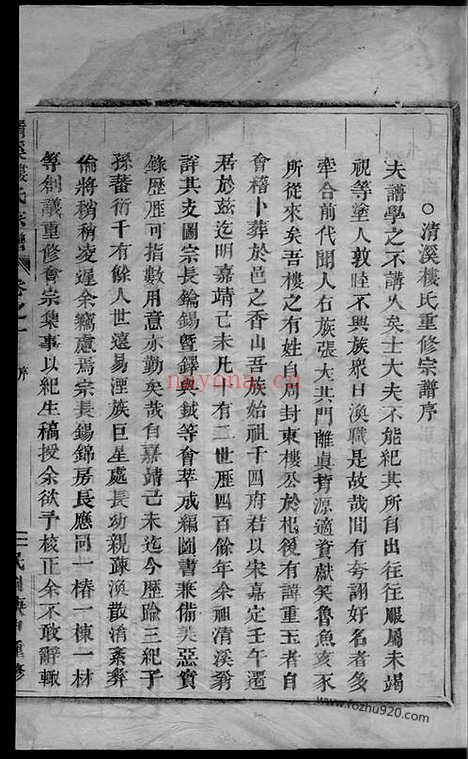 ○清溪樓氏重修宗譜序
夫譜學之不講久矣士大夫不能紀其所自出往往服屬未竭
視等塗人敦睦不興族衆日渙職是故哉間有夸詡好名者多
牽合前代聞人右族張大其門離眞背源適資獻笑魯魚亥豕
所從來矣吾樓之有姓自周封東樓公於杞後有諱重玉者自
會稽卜葬於邑之香山吾族始祖千四府君以宋嘉定壬午遷
居於茲迄明嘉靖己未凡十有二世歷四百餘年余祖清溪翁
詳其支圖宗長鑰錫曁鐸與鉞等會萃成編圖書兼備美惡實
錄歷歷可指數用意亦勤矣哉自嘉靖己未迄今歷踰三紀子
孫蕃衍千有餘人世遠易湮族巨星處長幼親疎渙散淆紊彝
倫將稍稍凌遲余竊慮焉宗長錫錦房長應同一椿一棟一材
等創議重修會宗集事以紀生稿授余欲予核正余不敢辭輙
清溪樓氏宗譜 卷之一 序
民國庚申重修
nayona.cn
www.fozhu920.com